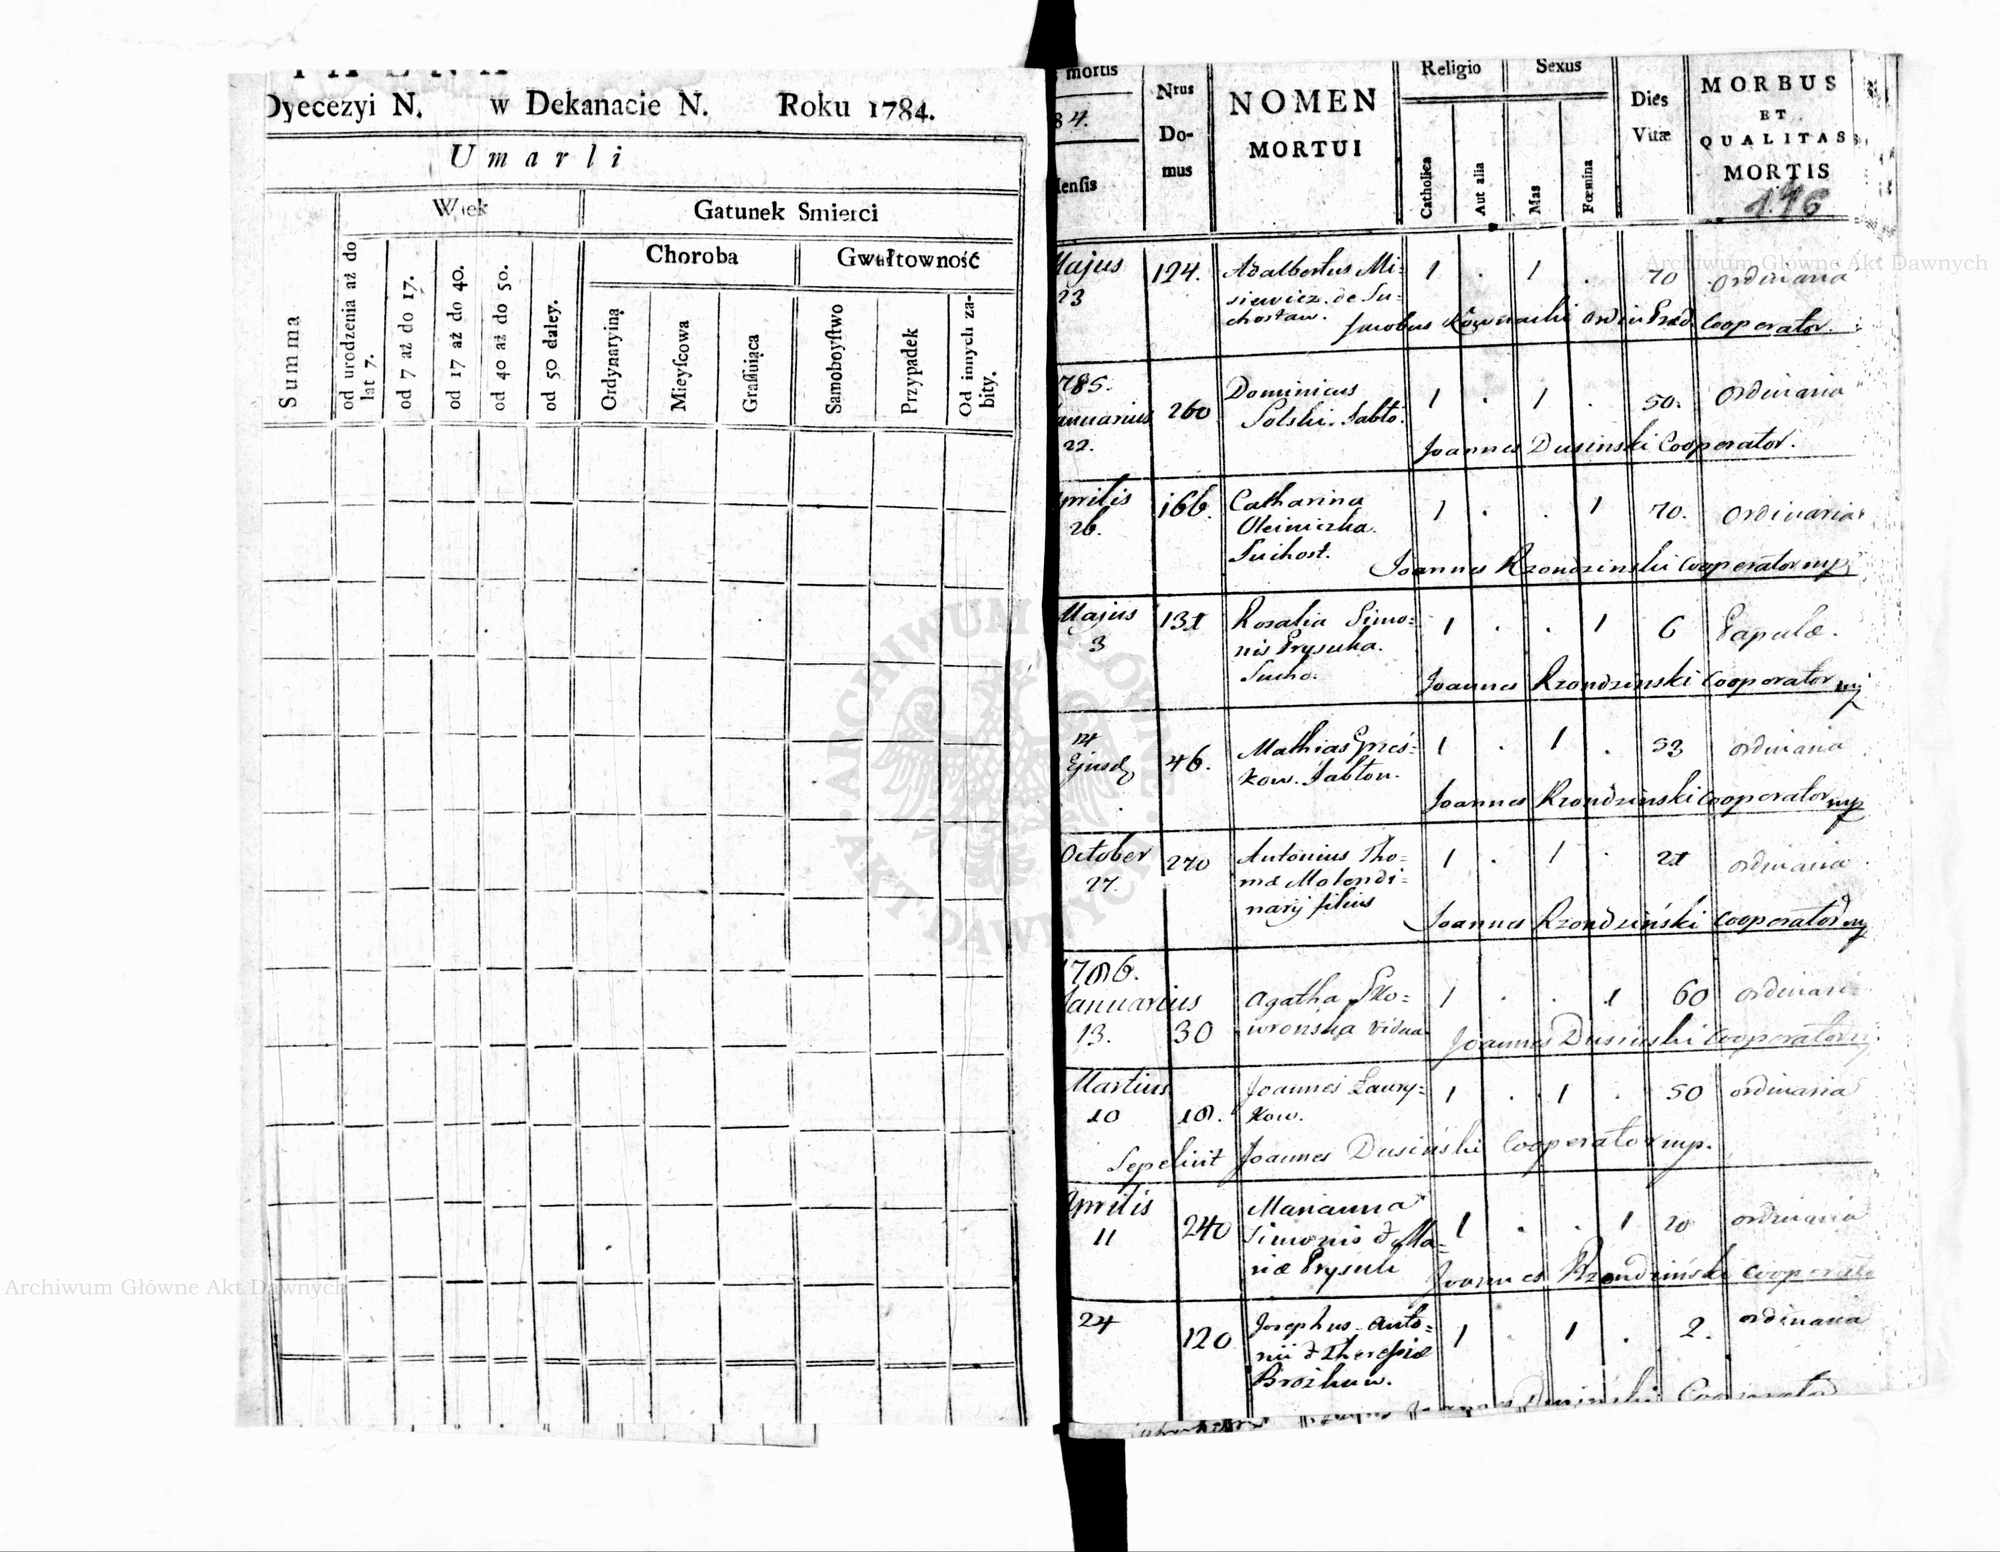 Dyecezyi N. w Dekanacie N. Roku 1784.
Umarli
Wiek
Gatunek Smierci
Choroba
Gwałtowność
Summa
od urodzenia aż do lat 7.
od 7 aż do 17.
od 17 aż do 40.
od 40 aż do 50.
od 50 daley.
Ordynaryiną
Mieyſcowa
Graſſuiąca
Samoboyſtwo
Przypadek
Od innych zabity.
mortis
Nrus Domus
NOMEN
MORTUI
Religio
Catholica
Aut alia
Sexus
Mas
Fœmina
Dies
Vitæ
MORBUS
ET
QUALITAS
MORTIS
84.
Majus 124. Adalbertus Mi= 1 . 1 . 70 ordinaria
23 siewicz. de Su=
chostaw. Jacobus Ordin Præd. Cooperator.
1785. Dominicus 1 . 1 . 50. Ordinaria
Januarius 260 Solski. Jabło.
22. Joannes Dusinski Cooperator.
Aprilis 166. Catharina 1 . . 1 70. Ordinaria
26. Oleiniczka.
Suchost. Joannes Rzondzinski Cooperator mp
Majus 131 Rosalia Simo= 1 . . 1 6 Papulæ.
3 nis Prysuka.
Sucho. Joannes Rzondzinski Cooperator mp
14 Mathias 1 . 1 . 53 ordinaria
Ejusd 46. kow. Jabłon.
Joannes Rzondzinski Cooperator mp
October 270 Antonius Tho= 1 . 1 . 21 ordinaria
27. mæ Molendi=
narij filius Joannes Rzondziński Cooperator mp
1786.
Januarius Agatha Sko= 1 . . 1 60 ordinaria
13. 30 wronska vidua Joannes Dusinski Cooperator mp
Martius Joannes Laury= 1 . 1 . 50 ordinaria
10 18. kow.
Sepelivit Joannes Dusiński Cooperator mp.
Aprilis Marianna 1 . . 1 20 ordinaria
11 240 Simonis & Ma=
riæ Prysuk Joannes Rzondziński Cooperator
24 120 Josephus Anto= 1 . 1 . 2. ordinaria
nii & Theresiæ
Cooperator
Archiwum Główne Akt Dawnych
Archiwum Główne Akt Dawnych
ARCHIWUM GŁÓWNE AKT DAWNYCH